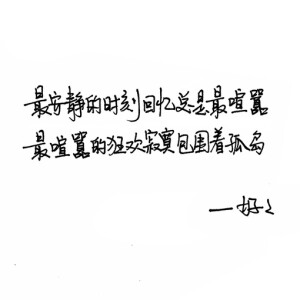 最安静的时刻回忆总是最喧嚣
最喧嚣的狂欢寂寞包围着孤岛